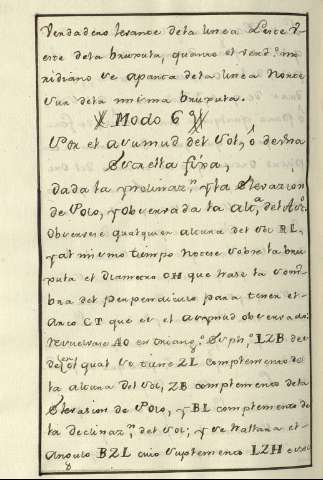 Verdadero levante de la linea Leste V
este de la bruxula, quanto el verd.º me
ridiano se aparta de la linea Norte
Sur de la misma bruxula.
Modo 6º
Por el acimud del Sol, ó de una
Estrella fixa,
dada la Declinaz.ⁿ y la Elevazion
de Polo, y observada la alt.ª del Ast.º
Observese qualquier altura del Sol RL,
y al mismo tiempo notese sobre la bru
xula el diametro OH que hase la som
bra del perpendiculo para tener el
Arco CT que es el acimud observado:
resuelvase AO en triang.º Esph.º LZB de
el qual se tiene ZL complemento de
la altura del Sol, ZB complemento de la
Elevasion de Polo, y BL complemento de
la declinaz.ⁿ del Sol; y se hallara el
Angulo BZL cuio suplemento LZH es el